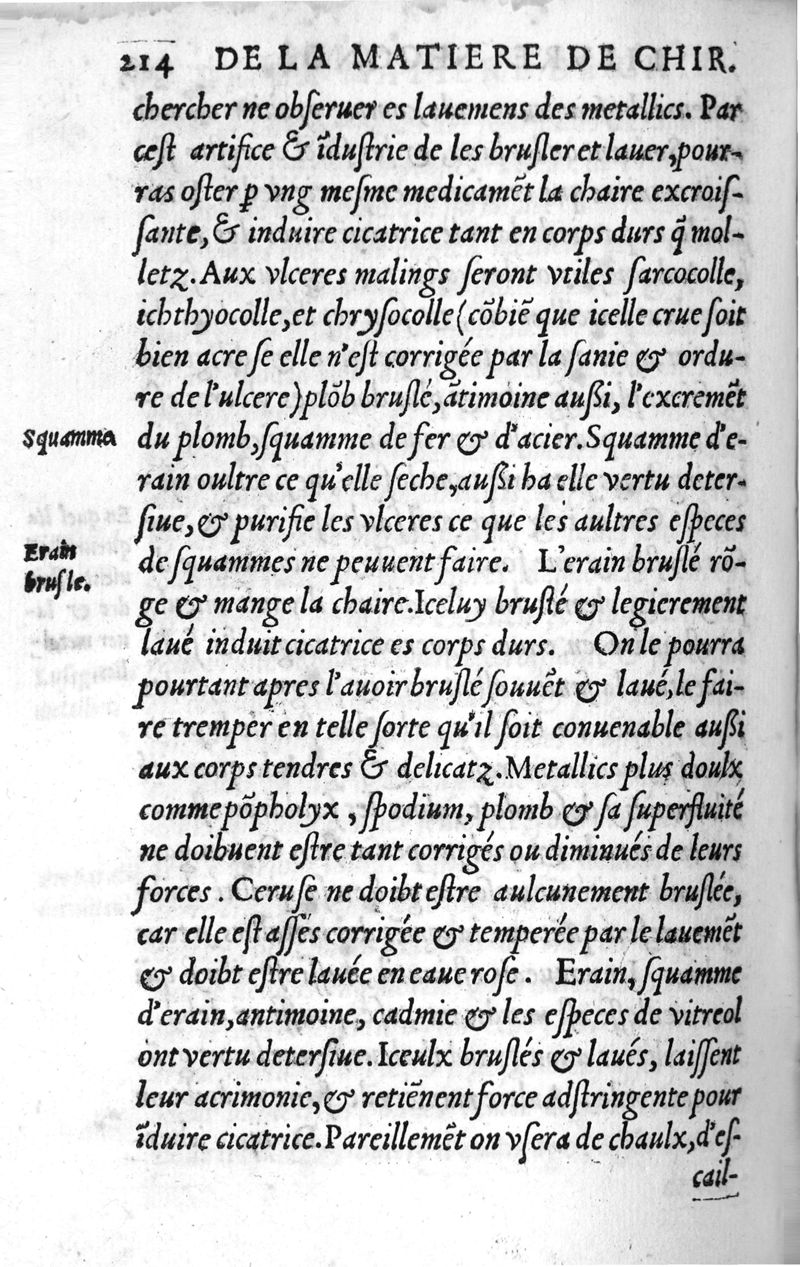 214 DE LA MATIERE DE CHIR.
chercher ne obſeruer es lauemens des metallics. Par
ceſt artifice & ĩduſtrie de les bruſler et lauer, pour-
ras oſter ꝑ vng meſme medicamẽt la chaire excroiſ-
ſante, & induire cicatrice tant en corps durs q̃ mol-
letz. Aux vlceres malings ſeront vtiles ſarcocolle,
ichthyocolle, et chryſocolle (cõbiẽ que icelle crue ſoit
bien acre ſe elle n'eſt corrigée par la ſanie & ordu-
re de l'ulcere) plõb bruſlé, ãtimoine außi, l'excremẽt
Squamma
du plomb, ſquamme de fer & d'acier. Squamme d'e-
rain oultre ce qu'elle ſeche, außi ha elle vertu deter-
ſiue, & purifie les vlceres ce que les aultres eſpeces
Erain
de ſquammes ne peuuent faire. L'erain bruſlé rõ-
bruſle.
ge & mange la chaire. Iceluy bruſlé & legierement
laué induit cicatrice es corps durs. On le pourra
pourtant apres l'auoir bruſlé ſouuẽt & laué, le fai-
re tremper en telle ſorte qu'il ſoit conuenable außi
aux corps tendres & delicatz. Metallics plus doulx
comme põpholyx, ſpodium, plomb & ſa ſuperfluité
ne doibuent eſtre tant corrigés ou diminués de leurs
forces. Ceruſe ne doibt eſtre aulcunement bruſlée,
car elle eſt aſſés corrigée & temperée par le lauemẽt
& doibt eſtre lauée en eaue roſe. Erain, ſquamme
d'erain, antimoine, cadmie & les eſpeces de vitreol
ont vertu deterſiue. Iceulx bruſlés & laués, laiſſent
leur acrimonie, & retiẽnent force adſtringente pour
ĩduire cicatrice. Pareillemẽt on vſera de chaulx, d'eſ-
cail-